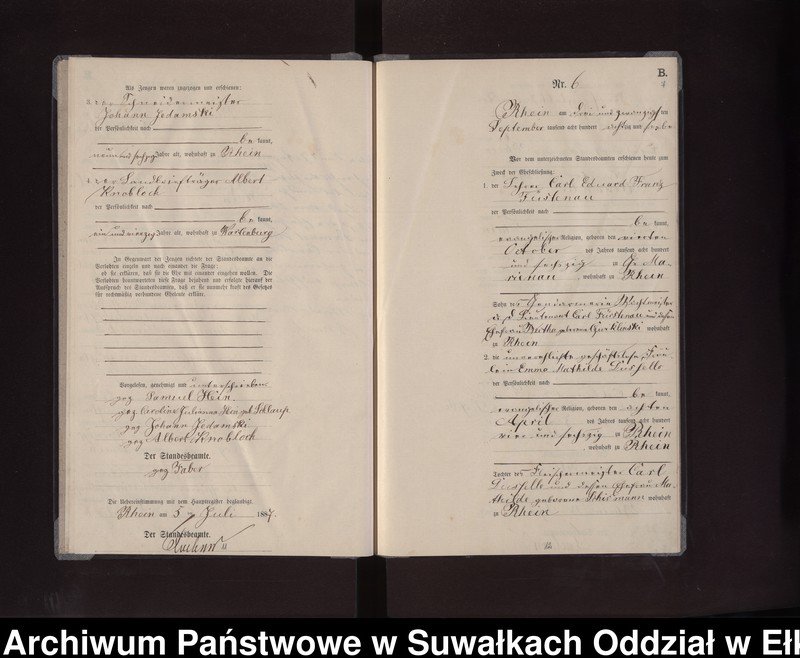 Als Zeugen waren zugezogen und erschienen:
3. der Schneidermeister
Johann Jedamski
der Persönlichkeit nach
be kannt,
neun und sechzig Jahre alt, wohnhaft zu Rhein
4. der Landbriefträger Albert
Knobloch
der Persönlichkeit nach
be kannt,
ein und vierzig Jahre alt, wohnhaft zu Wartenburg
In Gegenwart der Zeugen richtete der Standesbeamte an die
Verlobten einzeln und nach einander die Frage:
ob sie erklären, daß sie die Ehe mit einander eingehen wollen. Die
Verlobten beantworteten diese Frage bejahend und erfolgte hierauf der
Ausspruch des Standesbeamten, daß er sie nunmehr kraft des Gesetzes
für rechtmäßig verbundene Eheleute erkläre.
Vorgelesen, genehmigt und unterschrieben
gez Samuel Hein
gez Caroline Julianna Hein geb
gez Johann Jedamski
gez Albert Knobloch
Der Standesbeamte.
gez Faber
Die Uebereinstimmung mit dem Hauptregister beglaubigt.
Rhein am 5 Juli 1887.
Der Standesbeamte.
B.
Nr. 6.
Rhein am drei und zwanzigsten
September tausend acht hundert achtzig und
Vor dem unterzeichneten Standesbeamten erschienen heute zum
Zweck der Eheschließung:
1. der Lehrer Carl Eduard Franz
Fürstenau
der Persönlichkeit nach
be kannt,
evangelischer Religion, geboren den vierten
October des Jahres tausend acht hundert
und sechzig zu Gr. Ma-
rienau, wohnhaft zu Rhein
Sohn des Gendarmerie Wachtmeister
a. D. Lieutenant Carl Fürstenau und dessen
Ehefrau Bertha geborene wohnhaft
zu Rhein
2. die unverehelichte geschäftslose Fräu-
lein Emma Mathilde Dusselle
der Persönlichkeit nach
be kannt,
evangelischer Religion, geboren den achten
April des Jahres tausend acht hundert
vier und sechzig zu Rhein
, wohnhaft zu Rhein
Tochter des Fleischermeister Carl
Dusselle und dessen Ehefrau Ma-
thilde geborene Schirmann wohnhaft
zu Rhein
12
Archiwum Państwowe w Suwałkach Oddział w Ełk